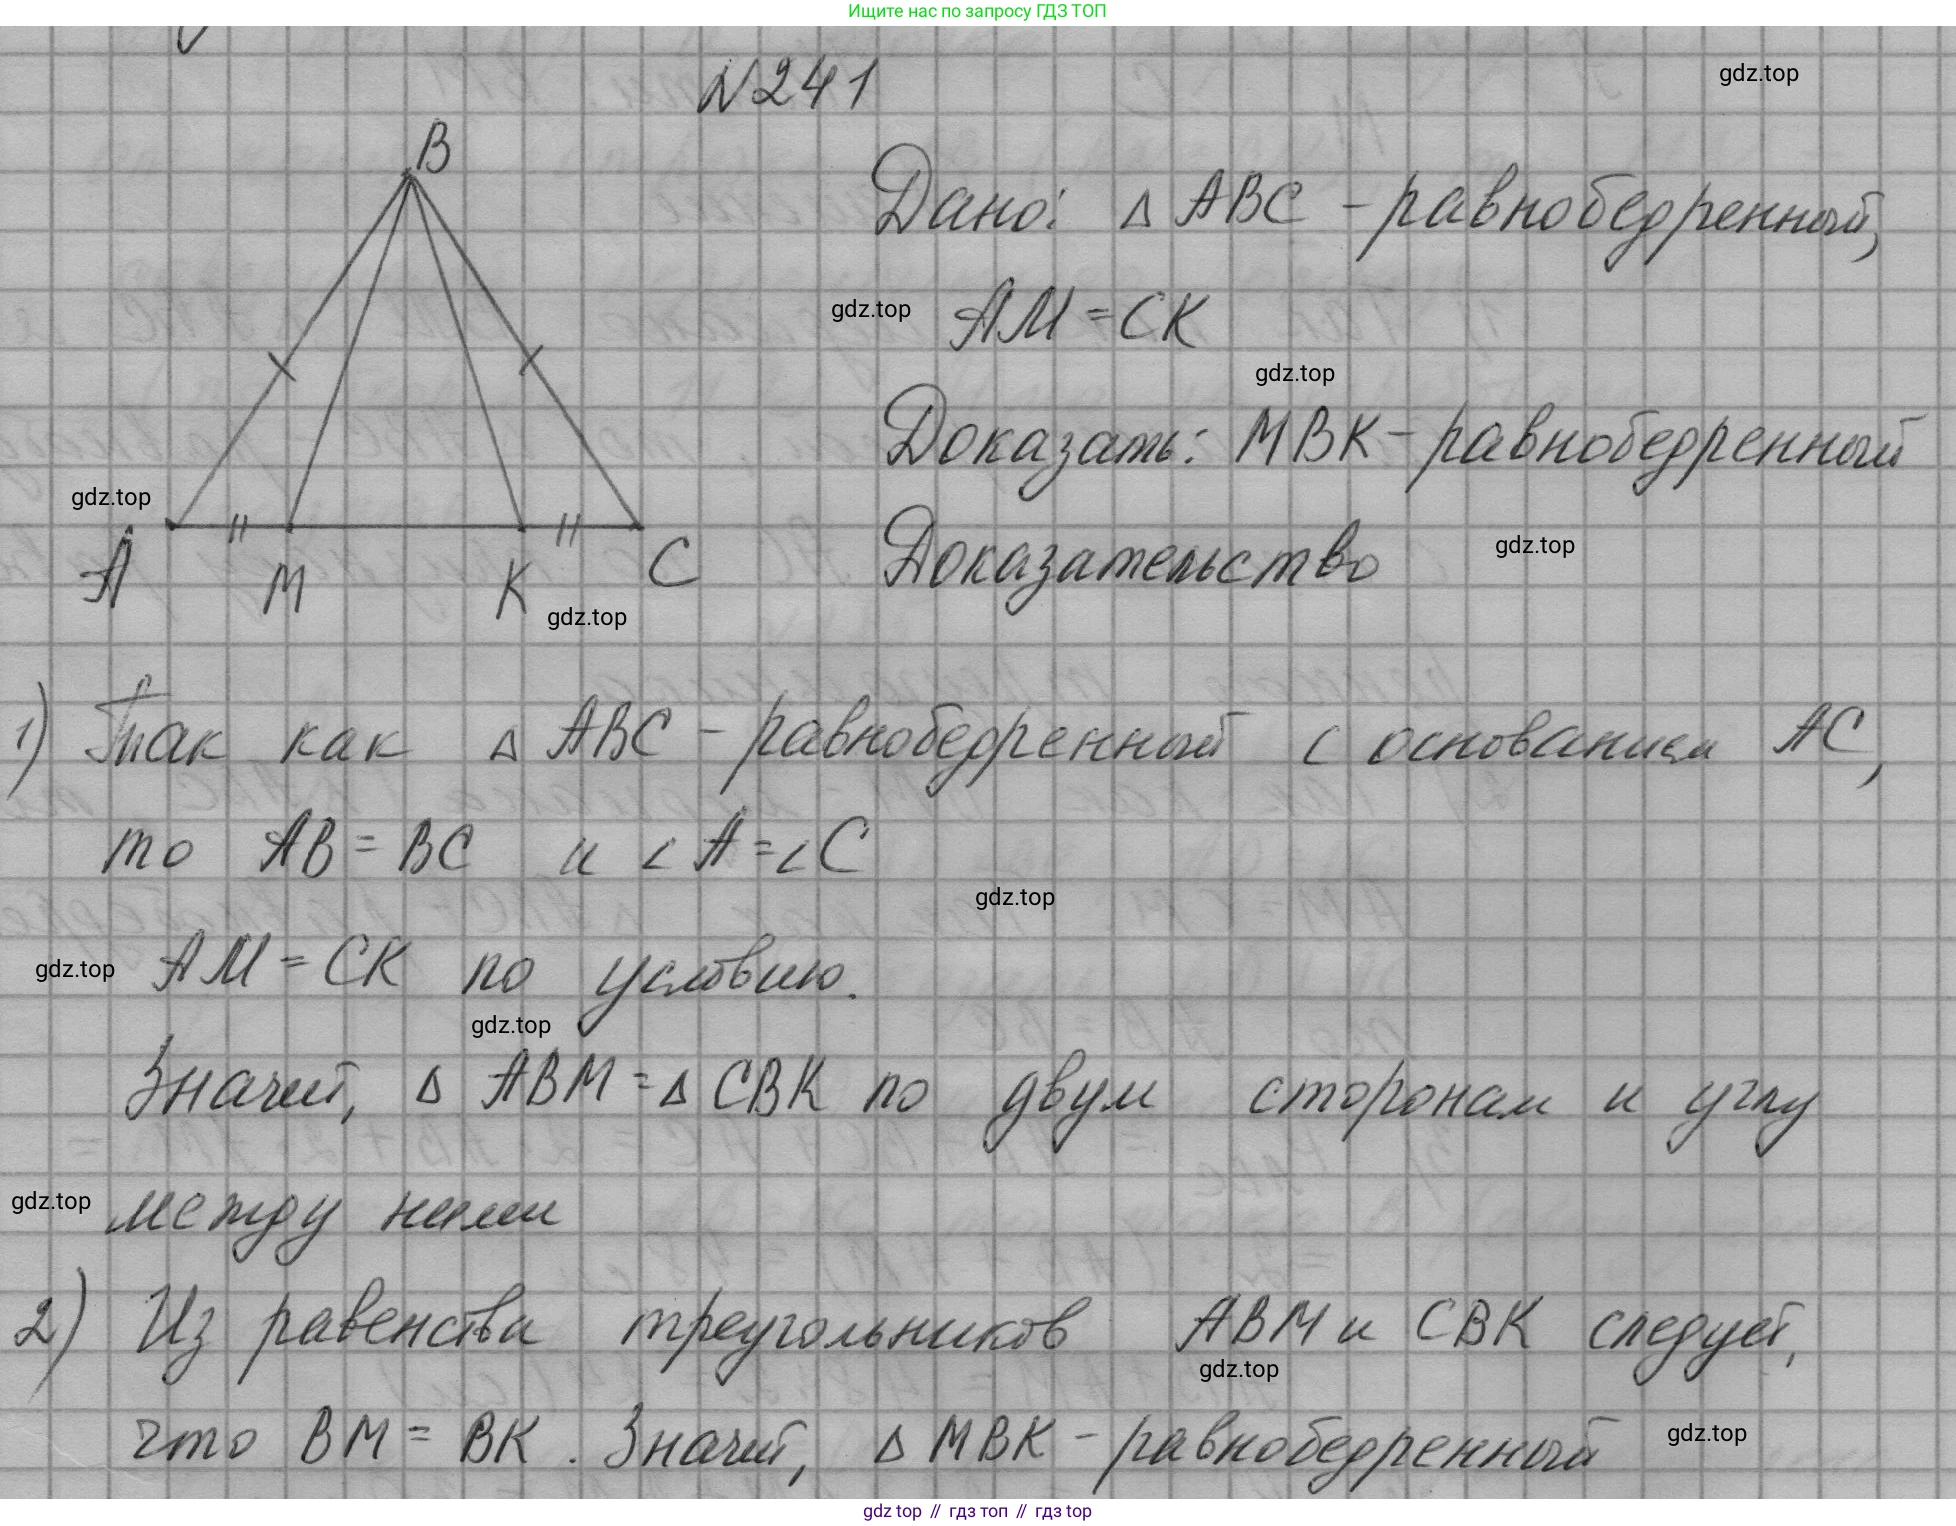 Ищите нас по запросу ГДЗ ТОП
N241
gdz.top
B
Дано: △ ABC - равнобедренный,
gdz.top
AM = CK
gdz.top
Доказать: MBK - равнобедренный
gdz.top
Доказательство
gdz.top
A
M
K
C
gdz.top
1) Так как △ ABC - равнобедренный с основанием AC,
то AB = BC и ∠A = ∠C
gdz.top
gdz.top
AM = CK по условию.
gdz.top
Значит, △ ABM = △ CBK по двум сторонам и углу
gdz.top
между ними
2) Из равенства треугольников ABM и CBK следует,
gdz.top
что BM = BK. Значит, △ MBK - равнобедренный
gdz.top
gdz top // гдз топ // гдз top